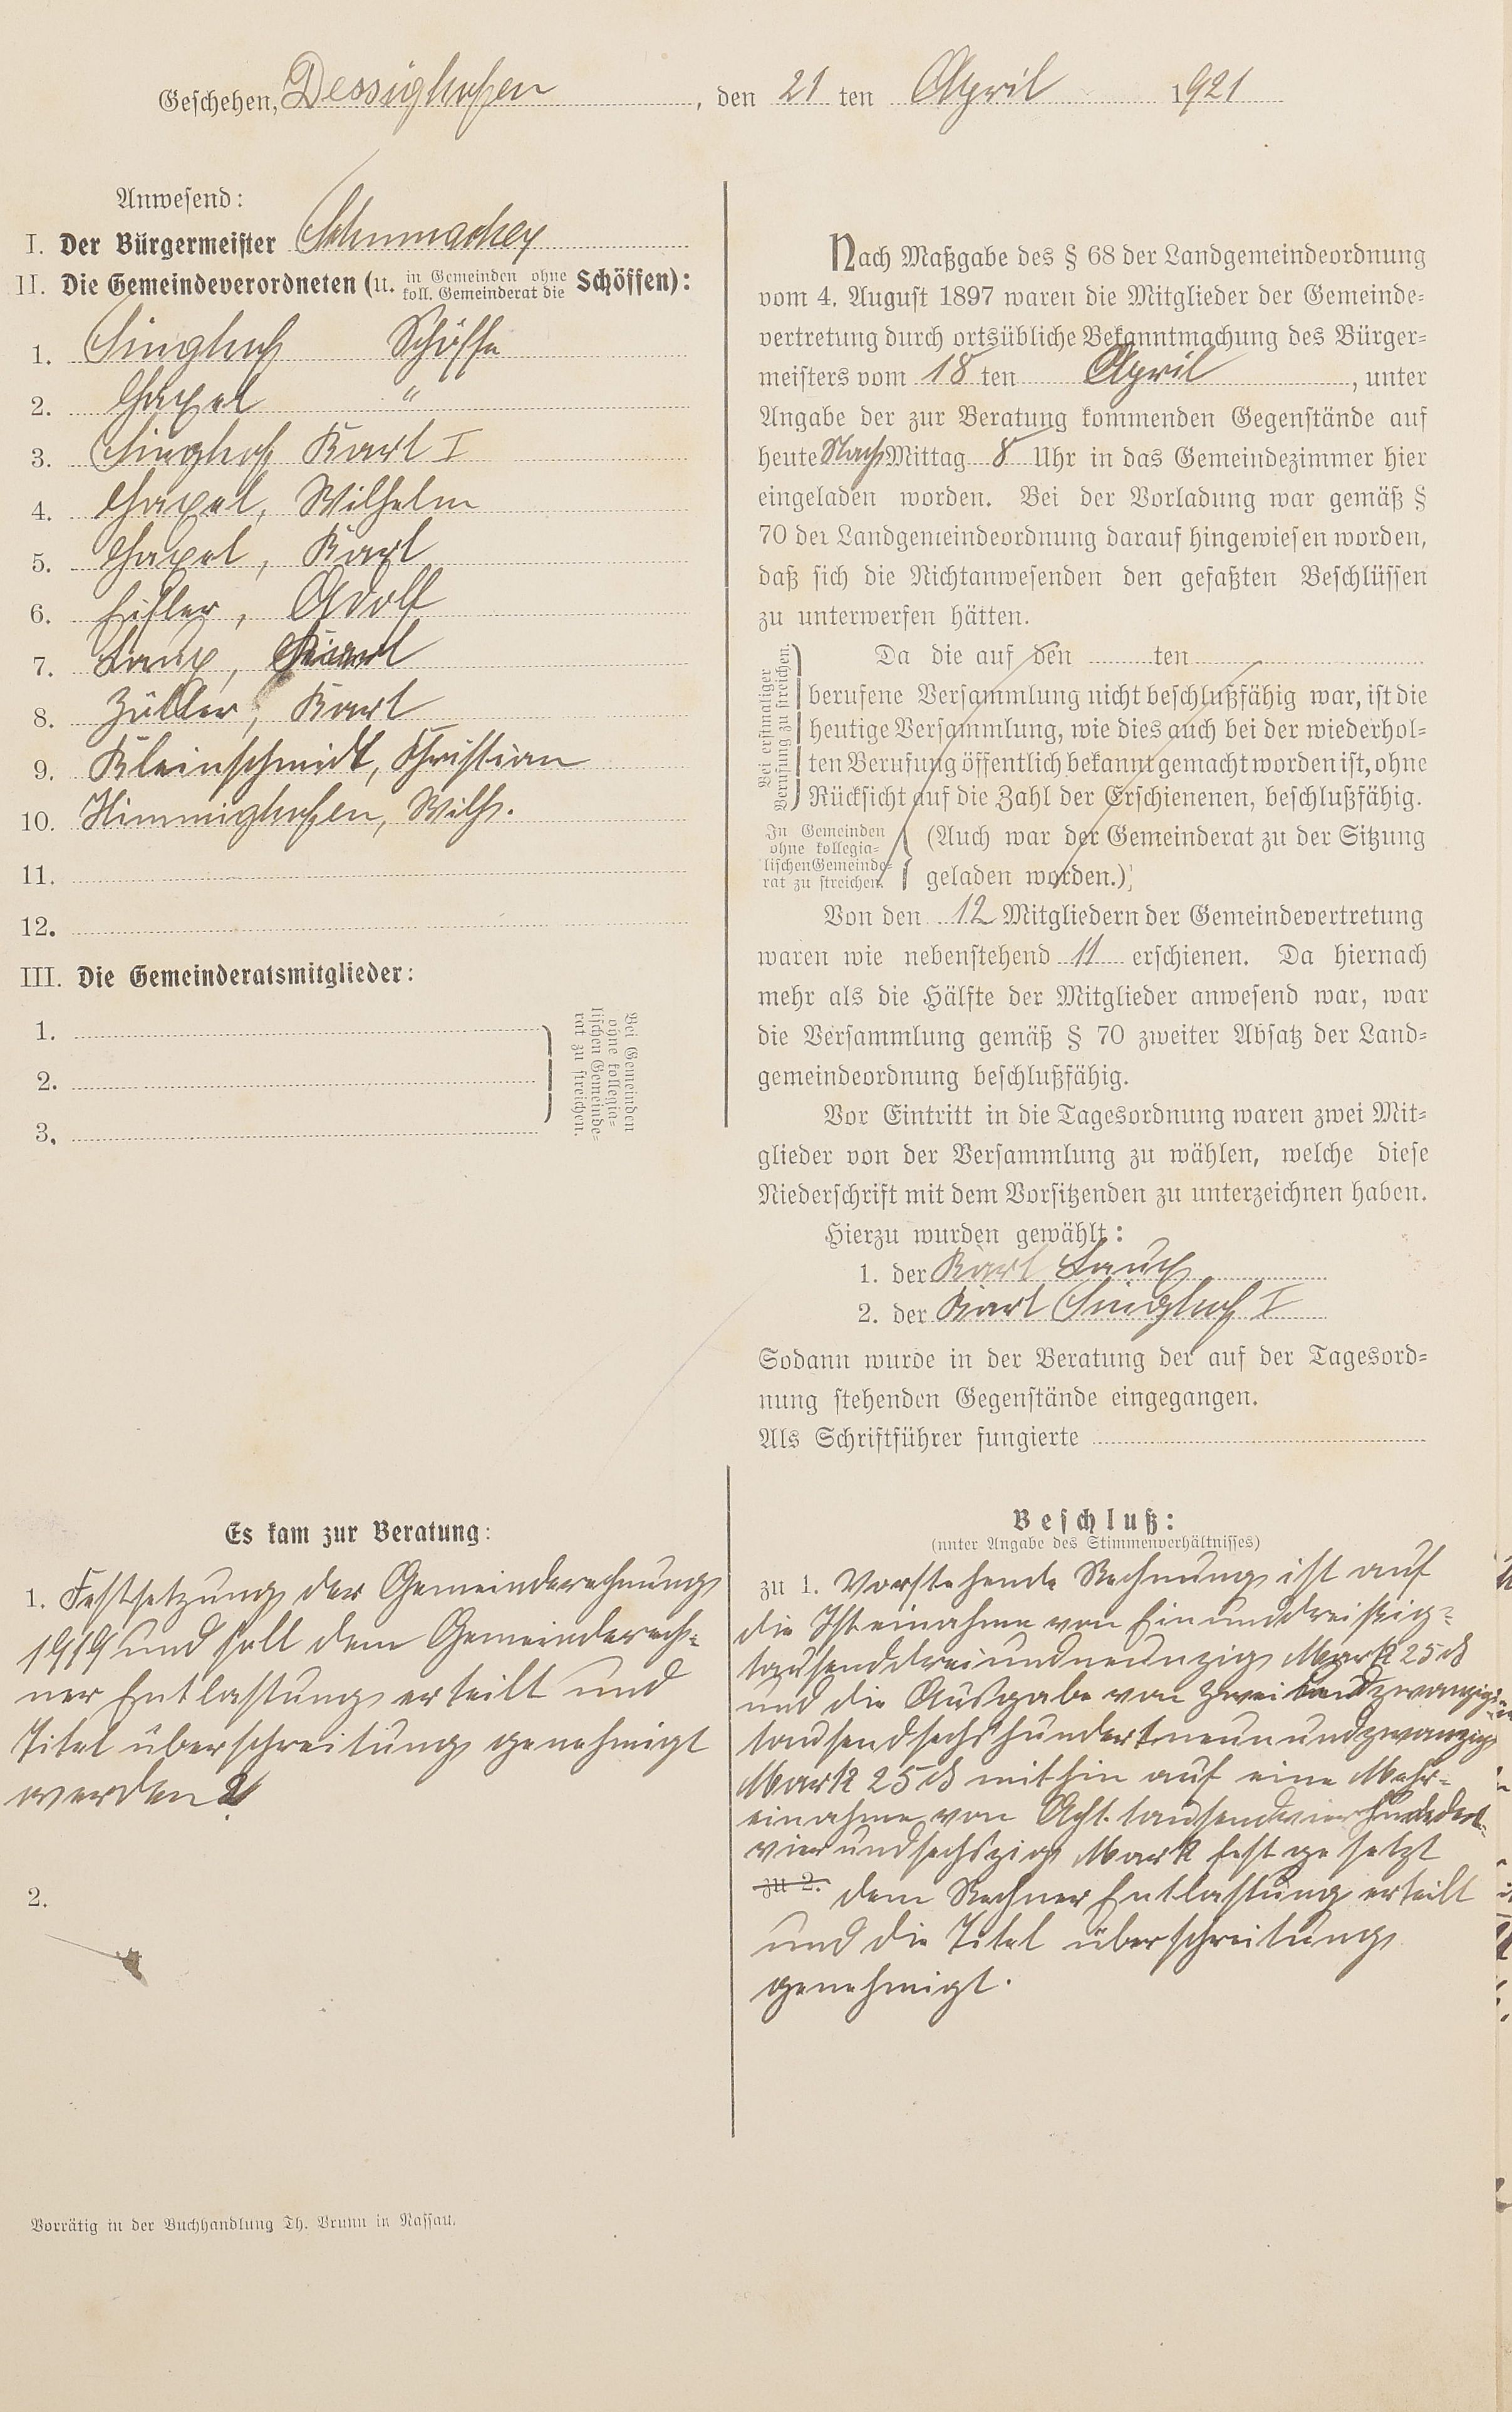 Geschehen, Dessighofen, den 21 ten April 1921
Anwesend:
I. Der Bürgermeister Schumacher
II. Die Gemeindeverordneten (u. in Gemeinden ohne koll. Gemeinderat die Schöffen):
1. Singhof Schöffe
2. "
3. Singhof Karl I
4. Wilhelm
5. Karl
6. Adolf
7. Karl
8. Zöller, Karl
9. Kleinschmidt, Christian
10. Himmighofen, Wilh.
11.
12.
III. Die Gemeinderatsmitglieder:
1.
2.
3.
Bei Gemeinden
ohne kollegia-
lischen Gemeinde-
rat zu streichen.
Nach Maßgabe des § 68 der Landgemeindeordnung
vom 4. August 1897 waren die Mitglieder der Gemeinde-
vertretung durch ortsübliche Bekanntmachung des Bürger-
meisters vom 18 ten April, unter
Angabe der zur Beratung kommenden Gegenstände auf
heute Nach Mittag 8 Uhr in das Gemeindezimmer hier
eingeladen worden. Bei der Vorladung war gemäß §
70 der Landgemeindeordnung darauf hingewiesen worden,
daß sich die Nichtanwesenden den gefaßten Beschlüssen
zu unterwerfen hätten.
Bei erstmaliger
Berufung zu streichen.
Da die auf den ten
berufene Versammlung nicht beschlußfähig war, ist die
heutige Versammlung, wie dies auch bei der wiederhol-
ten Berufung öffentlich bekannt gemacht worden ist, ohne
Rücksicht auf die Zahl der Erschienenen, beschlußfähig.
In Gemeinden
ohne kollegia-
lischen Gemeinde-
rat zu streichen.
(Auch war der Gemeinderat zu der Sitzung
geladen worden.)
Von den 12 Mitgliedern der Gemeindevertretung
waren wie nebenstehend 11 erschienen. Da hiernach
mehr als die Hälfte der Mitglieder anwesend war, war
die Versammlung gemäß § 70 zweiter Absatz der Land-
gemeindeordnung beschlußfähig.
Vor Eintritt in die Tagesordnung waren zwei Mit-
glieder von der Versammlung zu wählen, welche diese
Niederschrift mit dem Vorsitzenden zu unterzeichnen haben.
Hierzu wurden gewählt:
1. der Karl
2. der Karl Singhof I
Sodann wurde in der Beratung der auf der Tagesord-
nung stehenden Gegenstände eingegangen.
Als Schriftführer fungierte
Es kam zur Beratung:
1. Festsetzung der Gemeinderechnung
1919 und soll dem Gemeinderech-
ner Entlastung erteilt und
Titelüberschreitung genehmigt
werden?
2.
Beschluß:
(unter Angabe des Stimmenverhältnisses)
zu 1. Vorstehende Rechnung ist auf
die Isteinahme von Einunddreißig-
tausenddreiundneunzig Mark 25 ₰
und die Ausgabe von zweiundzwanzig-
tausendsechshundertneunundzwanzig
Mark 25 ₰ mithin auf eine Mehr-
einahme von Acht tausendvierhundert
vierundsechszig Mark festgesetzt
zu 2. dem Rechner Entlastung erteilt
und die Titelüberschreitung
genehmigt.
Vorrätig in der Buchhandlung Th. Brunn in Nassau.